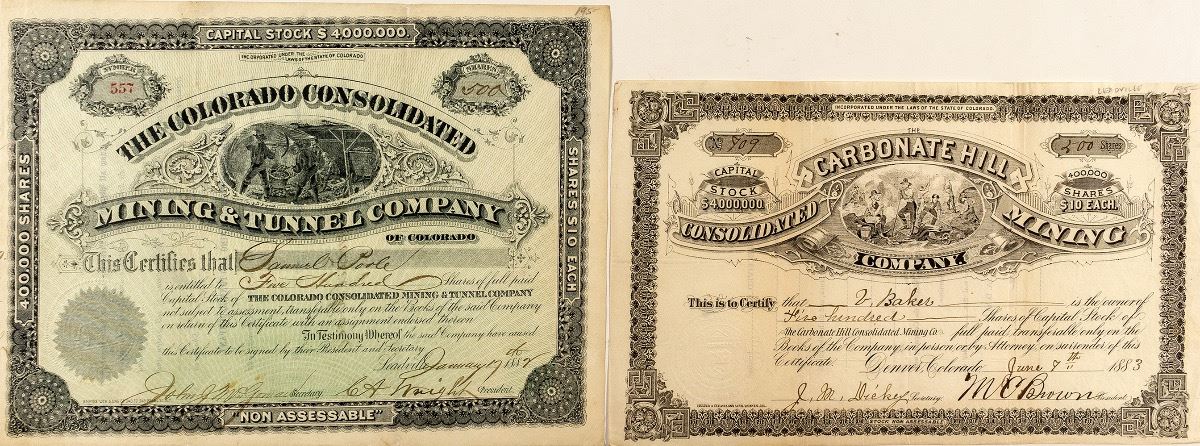 195-
CAPITAL STOCK $4000.000.
INCORPORATED UNDER THE LAWS OF THE STATE OF COLORADO
NUMBER
557
SHARES
500
THE COLORADO CONSOLIDATED
MINING & TUNNEL COMPANY
OF COLORADO
400.000 SHARES
SHARES $10 EACH
This Certifies that Samuel O. Poole
is entitled to Five Hundred Shares of full paid
Capital Stock of THE COLORADO CONSOLIDATED MINING & TUNNEL COMPANY
not subject to assessment, transferable only on the Books of the said Company
on return of this Certificate with an assignment endorsed hereon.
In Testimony Whereof the said Company have caused
this Certificate to be signed by their President and Secretary.
Leadville January 17th
Secretary. President.
"NON ASSESSABLE"
LEADVILLE
INCORPORATED UNDER THE LAWS OF THE STATE OF COLORADO.
No 809
500 Shares
THE
CARBONATE HILL
CAPITAL
STOCK
$4000000.
400,000
SHARES
$10 EACH.
CONSOLIDATED MINING
COMPANY
This is to Certify that V. Baker is the owner of
Five hundred Shares of Capital Stock of
The Carbonate Hill Consolidated Mining Co full paid, transferable only on the
Books of the Company, in person or by Attorney, on surrender of this
Certificate. Denver, Colorado June 7th 1883
J. M. Dickey Secretary. M C Brown President
STOCK NON ASSESSABLE